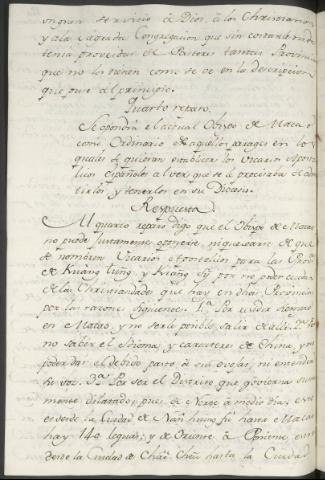 en gran servicio à Dios, à los Christianos,
y à la Sagrada Congregacion que sin costarla nada
tenia proveidas de Pastores tantas Provincias
que no los tienen como se ve en la descripcion
que puse al principio.
Quarto reparo.
Se opondrà el actual Obispo de Macao
como Ordinario de aquellos parages en los
quales se quieran establecer los Vicarios Aposto-
licos españoles al ver que se le precisaba à admi-
tirlos y tenerlos en su Diocesis.
Respuesta.
Al quarto reparo digo que el Obispo de Macao
no puede justamente oponerse, ni quexarse de que
se nombren Vicarios Apostolicos para las Prov.
de Kuàng tung, y Kuàng sy por no poder cuidar
de las Christiandades que hay en dhas Provincias
por las razones siguientes. 1.ª Por residir siempre
en Macao, y no serle posible salir de alli. 2.ª Por
no saber el Idioma, y caracteres de China, y no
poder dar el debido pasto à sus ovejas, ni entender
su voz. 3.ª Por ser el Distrito que govierna suma-
mente dilatado, pues de Norte à medio dia, esto
es desde la Ciudad de Nân hiung fù hasta Macao
hay 140 leguas; y de Oriente à Poniente, esto es
desde la Ciudad de Chào Cheu hasta la Ciudad